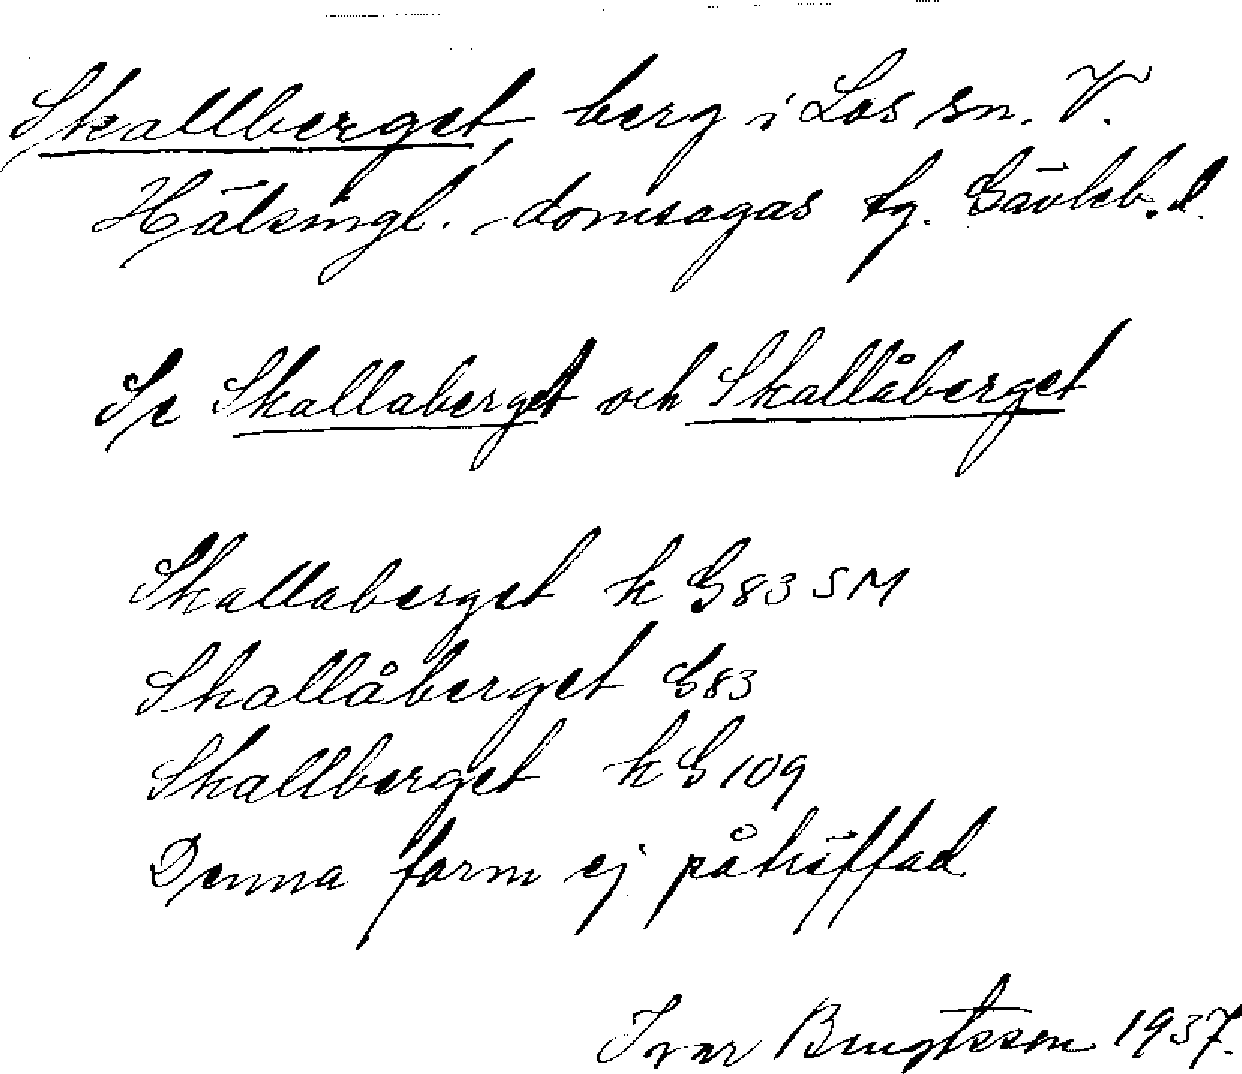 Skallberget, berg i Los sn. V.
Hälsingl. domsagas tg. Gävleb. l.
Se Skallaberget och Skallåberget
Skallaberget k G83 SM
Skallåberget G83
Skallberget k G109
Denna form ej påträffad
Ivar Bengtsson 1937.